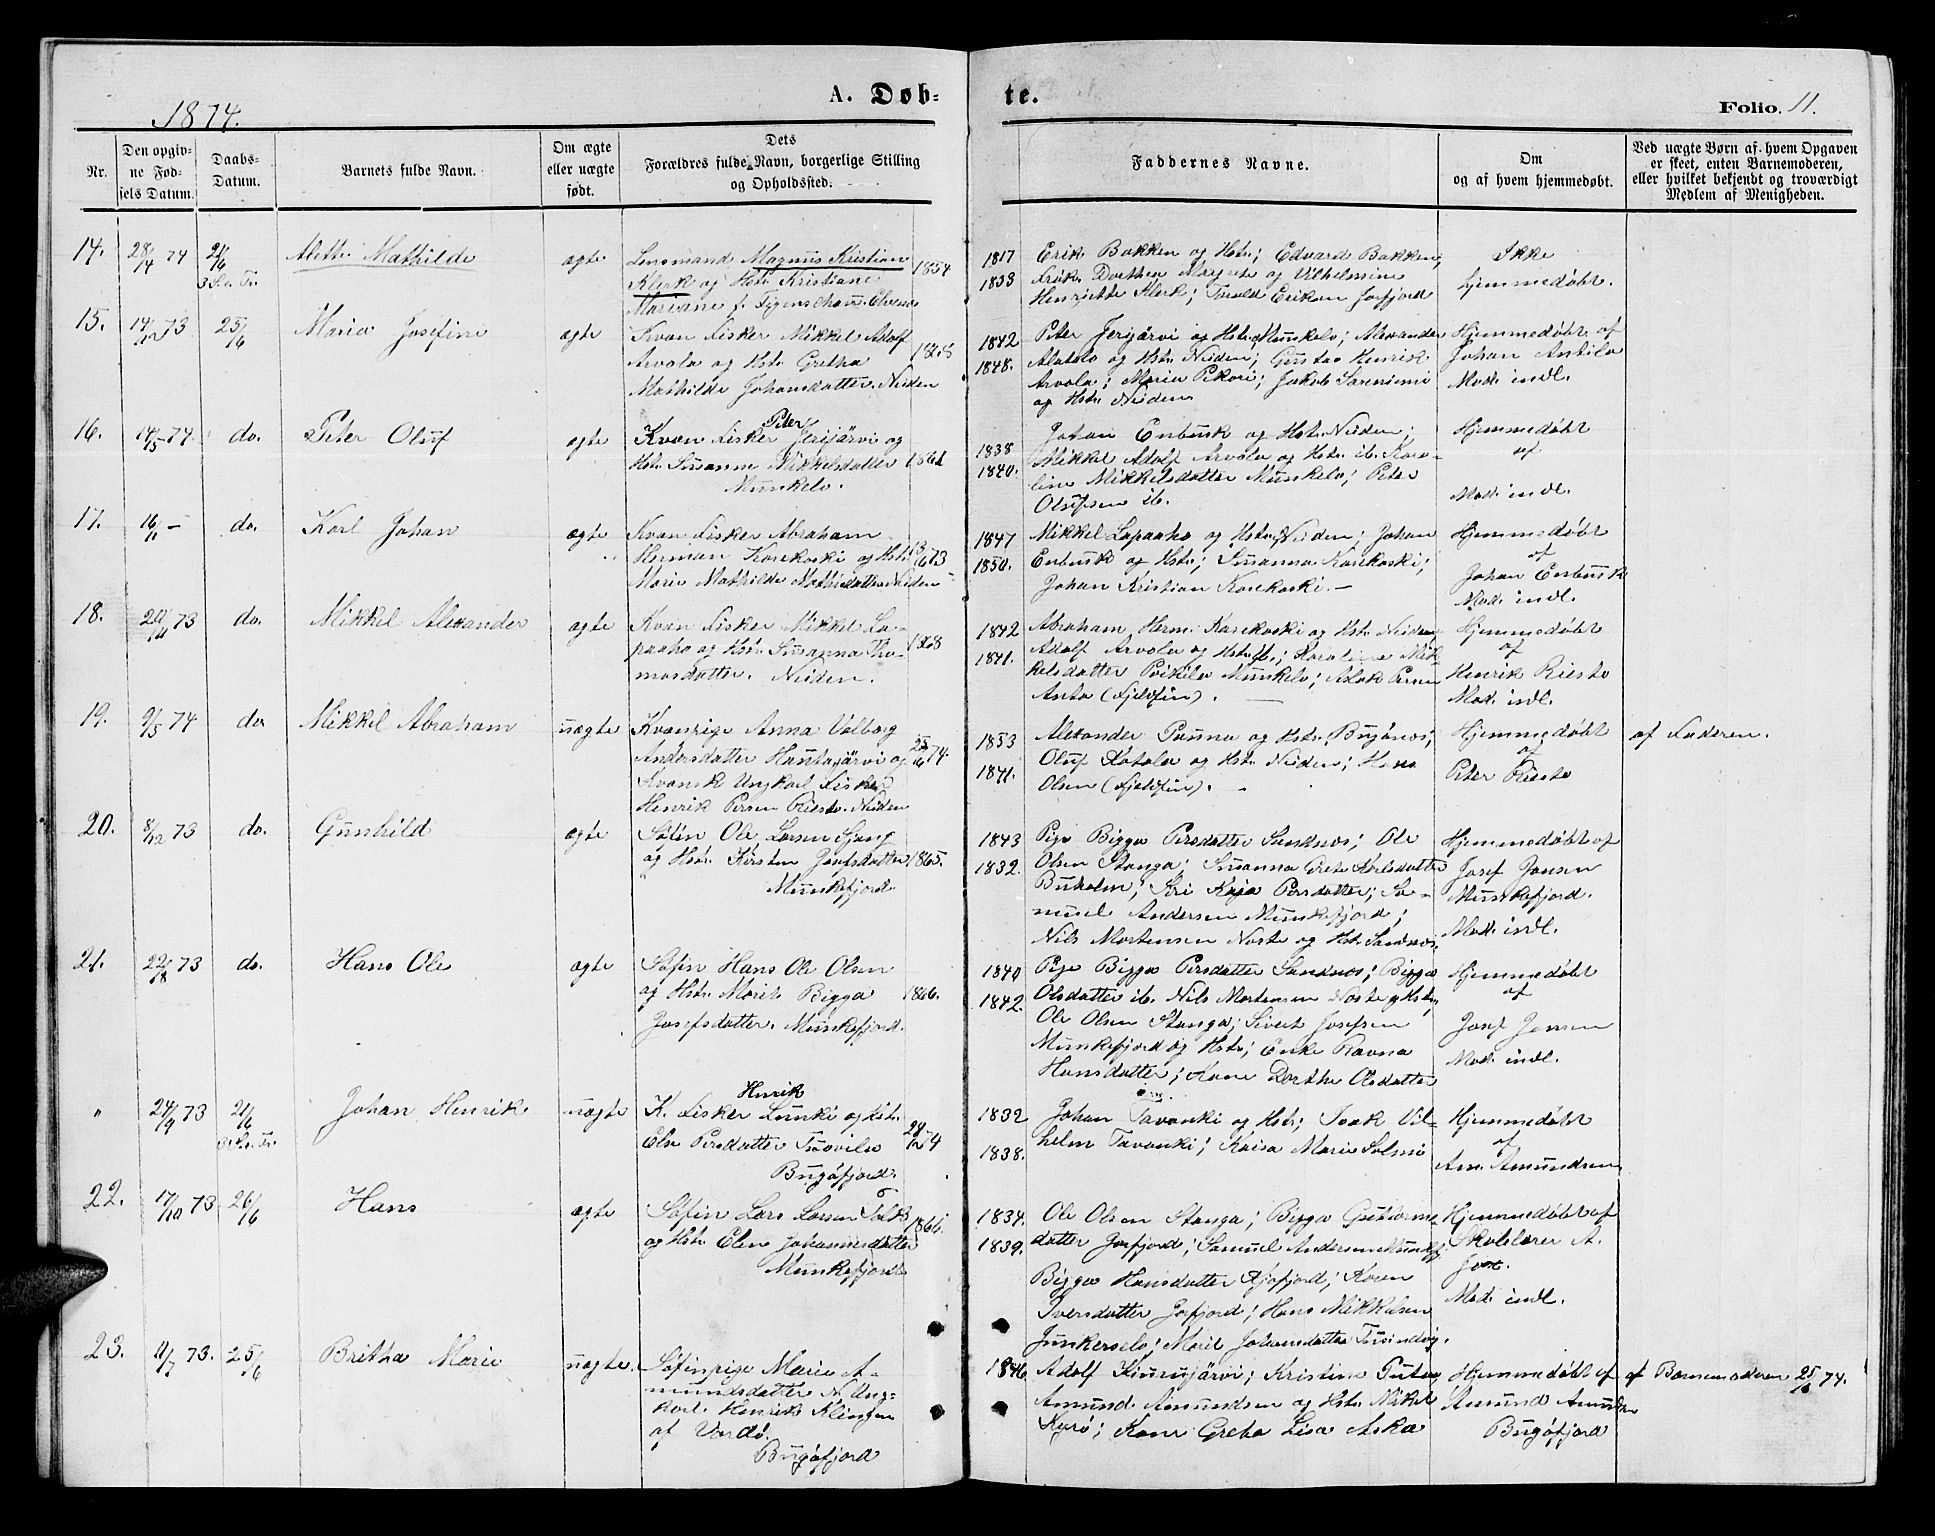 1874.
A. Døb-
te.
Folio. 11.
Nr.
Den opgiv-
ne Fød-
sels Datum.
Daabs-
Datum.
Barnets fulde Navn.
Om ægte
eller uægte
født.
Dets
Forældres fulde Navn, borgerlige Stilling
og Opholdssted.
Faddernes Navne.
Om
og af hvem hjemmedøbt.
Ved uægte Børn af hvem Opgaven
er skeet, enten Barnemoderen,
eller hvilket bekjendt og troværdigt
Medlem af Menigheden.
14.
28/4 74
21/6
3 S. e. Tr.
Aleth. Mathilde
ægte
Lensmand Magnus Kristian
Klerk og Hstr. Kristiane
Mariane f.
1854
1817
1833
Erik Bakken og Hstr; Edvard Bakken;
Frøk. Dorthea Margrete og Vilhelmine
Henriette Klerk; Erikson Jarfjord
Ikke
hjemmedøbt.
15.
14/12 73
25/6
Maria Josefine
ægte
Kvæn Fisker Mikkel Adolf
Arvola og Hstr. Gretha
Mathilde Johansdatter. Neiden
1868
1842
1848.
Peter Jerijärvi og Hstr. Munkelv; Alexander
Alatalo og Hstr. Neiden; Gustav Henrik
Arvola; Maria Pikori; Jakob Sareniemi
og Hstr. Neiden
Hjemmedøbt af
Johan Antila
Mod. indl.
16.
14/5 - 74.
do.
Peter Oluf
ægte
Peter
Kvæn Fisker Jerijärvi og
Hstr. Susanna Mikkelsdatter
Munkelv.
1861
1838
1840.
Johan Enbusk og Hstr. Neiden;
Mikkel Adolf Arvola og Hstr. ib. Karo-
line Mikkelsdatter Munkelv; Peter
Olufsen ib.
Hjemmedøbt
af
Mod. indl.
17.
16/11 -
do.
Karl Johan
ægte
Kvæn Fisker Abraham
Herman Karekoski og Hstr.
Marie Mathilde Mathisdatter Neiden
13/6 73
1847
1850.
Mikkel Lapaaho og Hstr. Neiden; Johan
Enbusk og Hstr; Susanna Karekoski;
Johan Kristian Karekoski. —
Hjemmedøbt
af
Johan Enbusk
Mod. indl.
18.
20/11 73
do.
Mikkel Alexander
ægte
Kvæn Fisker Mikkel La-
paaho og Hstr. Susanna Tho-
masdatter. Neiden.
1868
1842
1841.
Abraham Herm. Karekoski og Hstr. Neiden;
Adolf Arvola og Hstr. ib.; Karoline Mik-
kelsdatter Poikila Munkelv; Aslak Persen
Anta (Fjeldfin). —
Hjemmedøbt
af
Henrik Riesto
Mod. indl.
19.
9/5 74
do
Mikkel Abraham
uægte
Kvænpige Anna Valborg
Andersdatter Hantajärvi og
Kvænsk Ungkarl Fisker
Henrik Persen Riesto. Neiden
25/6 74.
1853
1841.
Alexander Pauna og Hstr. Bugønæs;
Oluf Katala og Hstr. Neiden; Hans
Olsen (Fjeldfin). —
Hjemmedøbt
af
Peter Riesto
af Faderen.
20.
8/12 73
do.
Gunhild
ægte
Søfin Ole Larsen Sjang
og Hstr. Kirsten Josefsdatter
Munkefjord
1865.
1843
1832.
Pige Bigga Persdatter Sandnæs; Ole
Olsen Stanga; Susanna Grete Karlsdatter
Buholm; Siri Kaja Persdatter; Sa-
muel Andersen Munkefjord;
Nils Mortensen Noste og Hstr. Sandnæs.
Hjemmedøbt af
Josef Jonsen
Munkefjord.
Mod. indl.
21.
22/8 73
do.
Hans Ole
ægte
Søfin Hans Ole Olsen
og Hstr. Marit Bigga
Josefsdatter. Munkefjord.
1866.
1840
1842.
Pige Bigga Persdatter Sandnæs; Bigga
Olsdatter ib. Nils Mortensen Noste og Hstr;
Ole Olsen Stanga; Sivert Josefsen
Munkefjord og Hstr; Enke Ravna
Hansdatter; Kone Dorthe Olsdatter
Hjemmedøbt
af
Josef Jonsen
Mod. indl.
"
24/9 73
21/6
3 S. e. Tr.
Johan Henrik
uægte
Henrik
K. Fisker Lunki og
Else Persdatter
Bugøfjord.
74
1832
1838.
Johan Tavanki og Hstr; Isak Vil-
helm Tavanki; Kaisa Maria Salmi
Hjemmedøbt
af
Am. Amundsen
22.
17/10 73
26/6
Hans
ægte
Søfin Lars Larsen
og Hstr. Elen Johannesdatter
Munkefjord
1866.
1834.
1839.
Ole Olsen Stanga; Bigga Guttorms-
datter Jarfjord; Samuel Andersen Munkfj.
Bigga Hansdatter Kjøfjord; Karen
Iversdatter Jarfjord; Hans Mikkelsen
Junkerselv; Marit Johansdatter
Hjemmedøbt af
Skolelærer A.
Mod. indl.
23.
11/7 73.
25/6
Britha Marie
uægte.
Søfinpige Marie A-
mundsdatter & Ung-
karl Henrik Klingen
af Vardø.
Bugøfjord
1846
Adolf Kinnujärvi; Kristine
Amund Amundsen og Hstr. Mikel
Karø; Kone Greta Lisa Aska
Hjemmedøbt af
Amund Amundsen
Bugøfjord
af Barnemoderen 25/6 74.